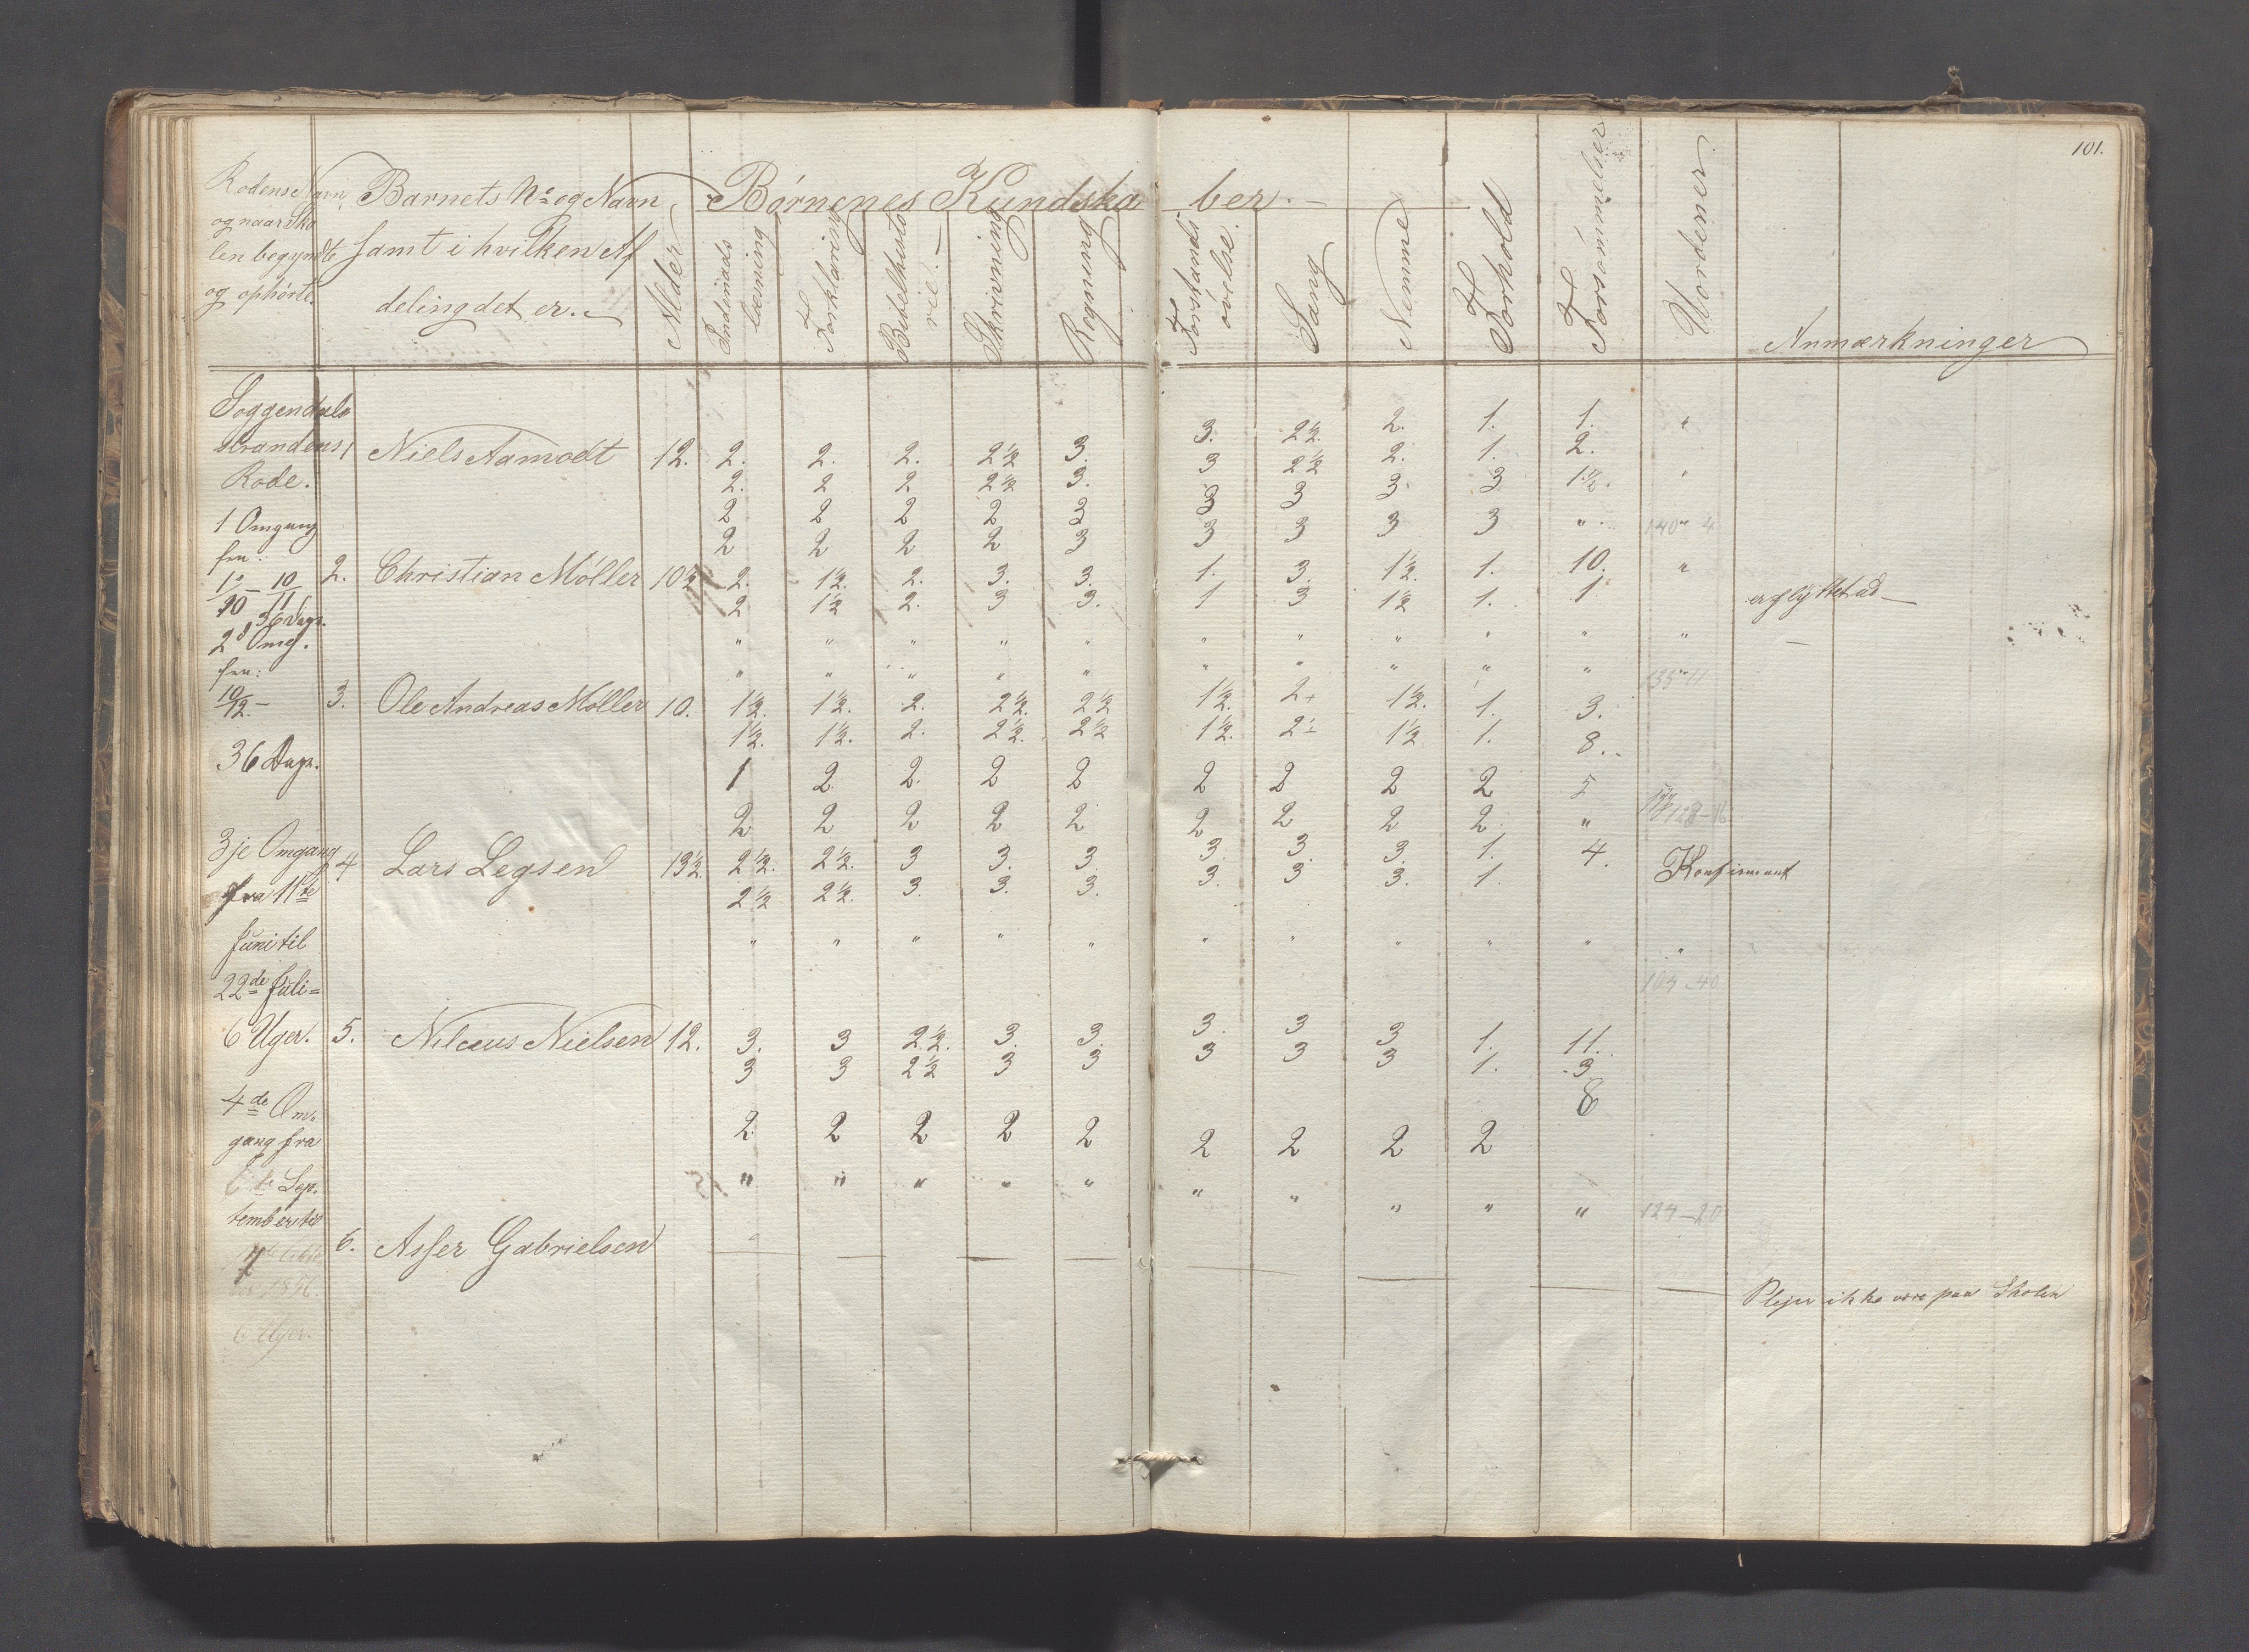 101.
Rodens Navn, Barnets No og Navn Børnenes Kundska ber.
og naar Sko
len begyndte samt i hvilken Af
og ophørte. deling det er. Alder Indenads læsning Forklaring Bibelhisto rie. Skrivning Regning Forstands øvelse. Sang Nemme Forhold Forsømmelser Vordener Anmærkninger
Soggendals
strandens 1 Niels Aamodt 12. 2. 2. 2. 2½ 3. 3. 2½. 2. 1. 1. "
Rode. 2. 2 2 2½ 3. 3 2½ 2. 1. 2.
2 2 2 2 3 3 3 3 3 1½. "
1 Omgang 2 2 2 2 3 3 3 3 3 " 140" 4
fra:
2. Christian Møller 10½ 2. 1½. 2. 3. 3. 1. 3. 1½. 1. 10. "
2 1½ 2. 3 3. 1 3 1½ 1. 1 er flyttet ud
36 Dage.
2d Omg. " " " " " " " " " " "
fra: " " " " " " " " " " 135" 11
10/12 - 3. Ole Andreas Møller 10. 1½. 1½. 2. 2½. 2½ 1½. 2+ 1½. 1. 3.
1½. 1½. 2. 2½. 2½ 1½. 2½ 1½ 1. 8.
36 Dage. 1 2 2. 2 2 2 2 2 2 5
2 2 2 2 2 2 2 2 2 " 128-16
3je Omgang 4 Lars Legsen 13½. 2½. 2½. 3 3. 3. 3. 3. 3. 1. 4. Konfirmant
fra 11te 2½ 2½. 3. 3. 3. 3. 3 3. 1.
Juni til " " " " " " " " " " "
22de Juli= 104-40
6 Uger. 5. Nilæus Nielsen 12. 3. 3 2½. 3. 3. 3. 3 3 1. 11.
3 3 2½ 3 3 3 3 3 1. 3
4de Om- 8
gang fra 2 2 2 2 2 2 2 2 2
6te Sep- " " " " " " " " " " 124-20
tember til
6. Asser Gabrielsen — — — — — — — —
Plejer ikke være paa Skolen
6 Uger.